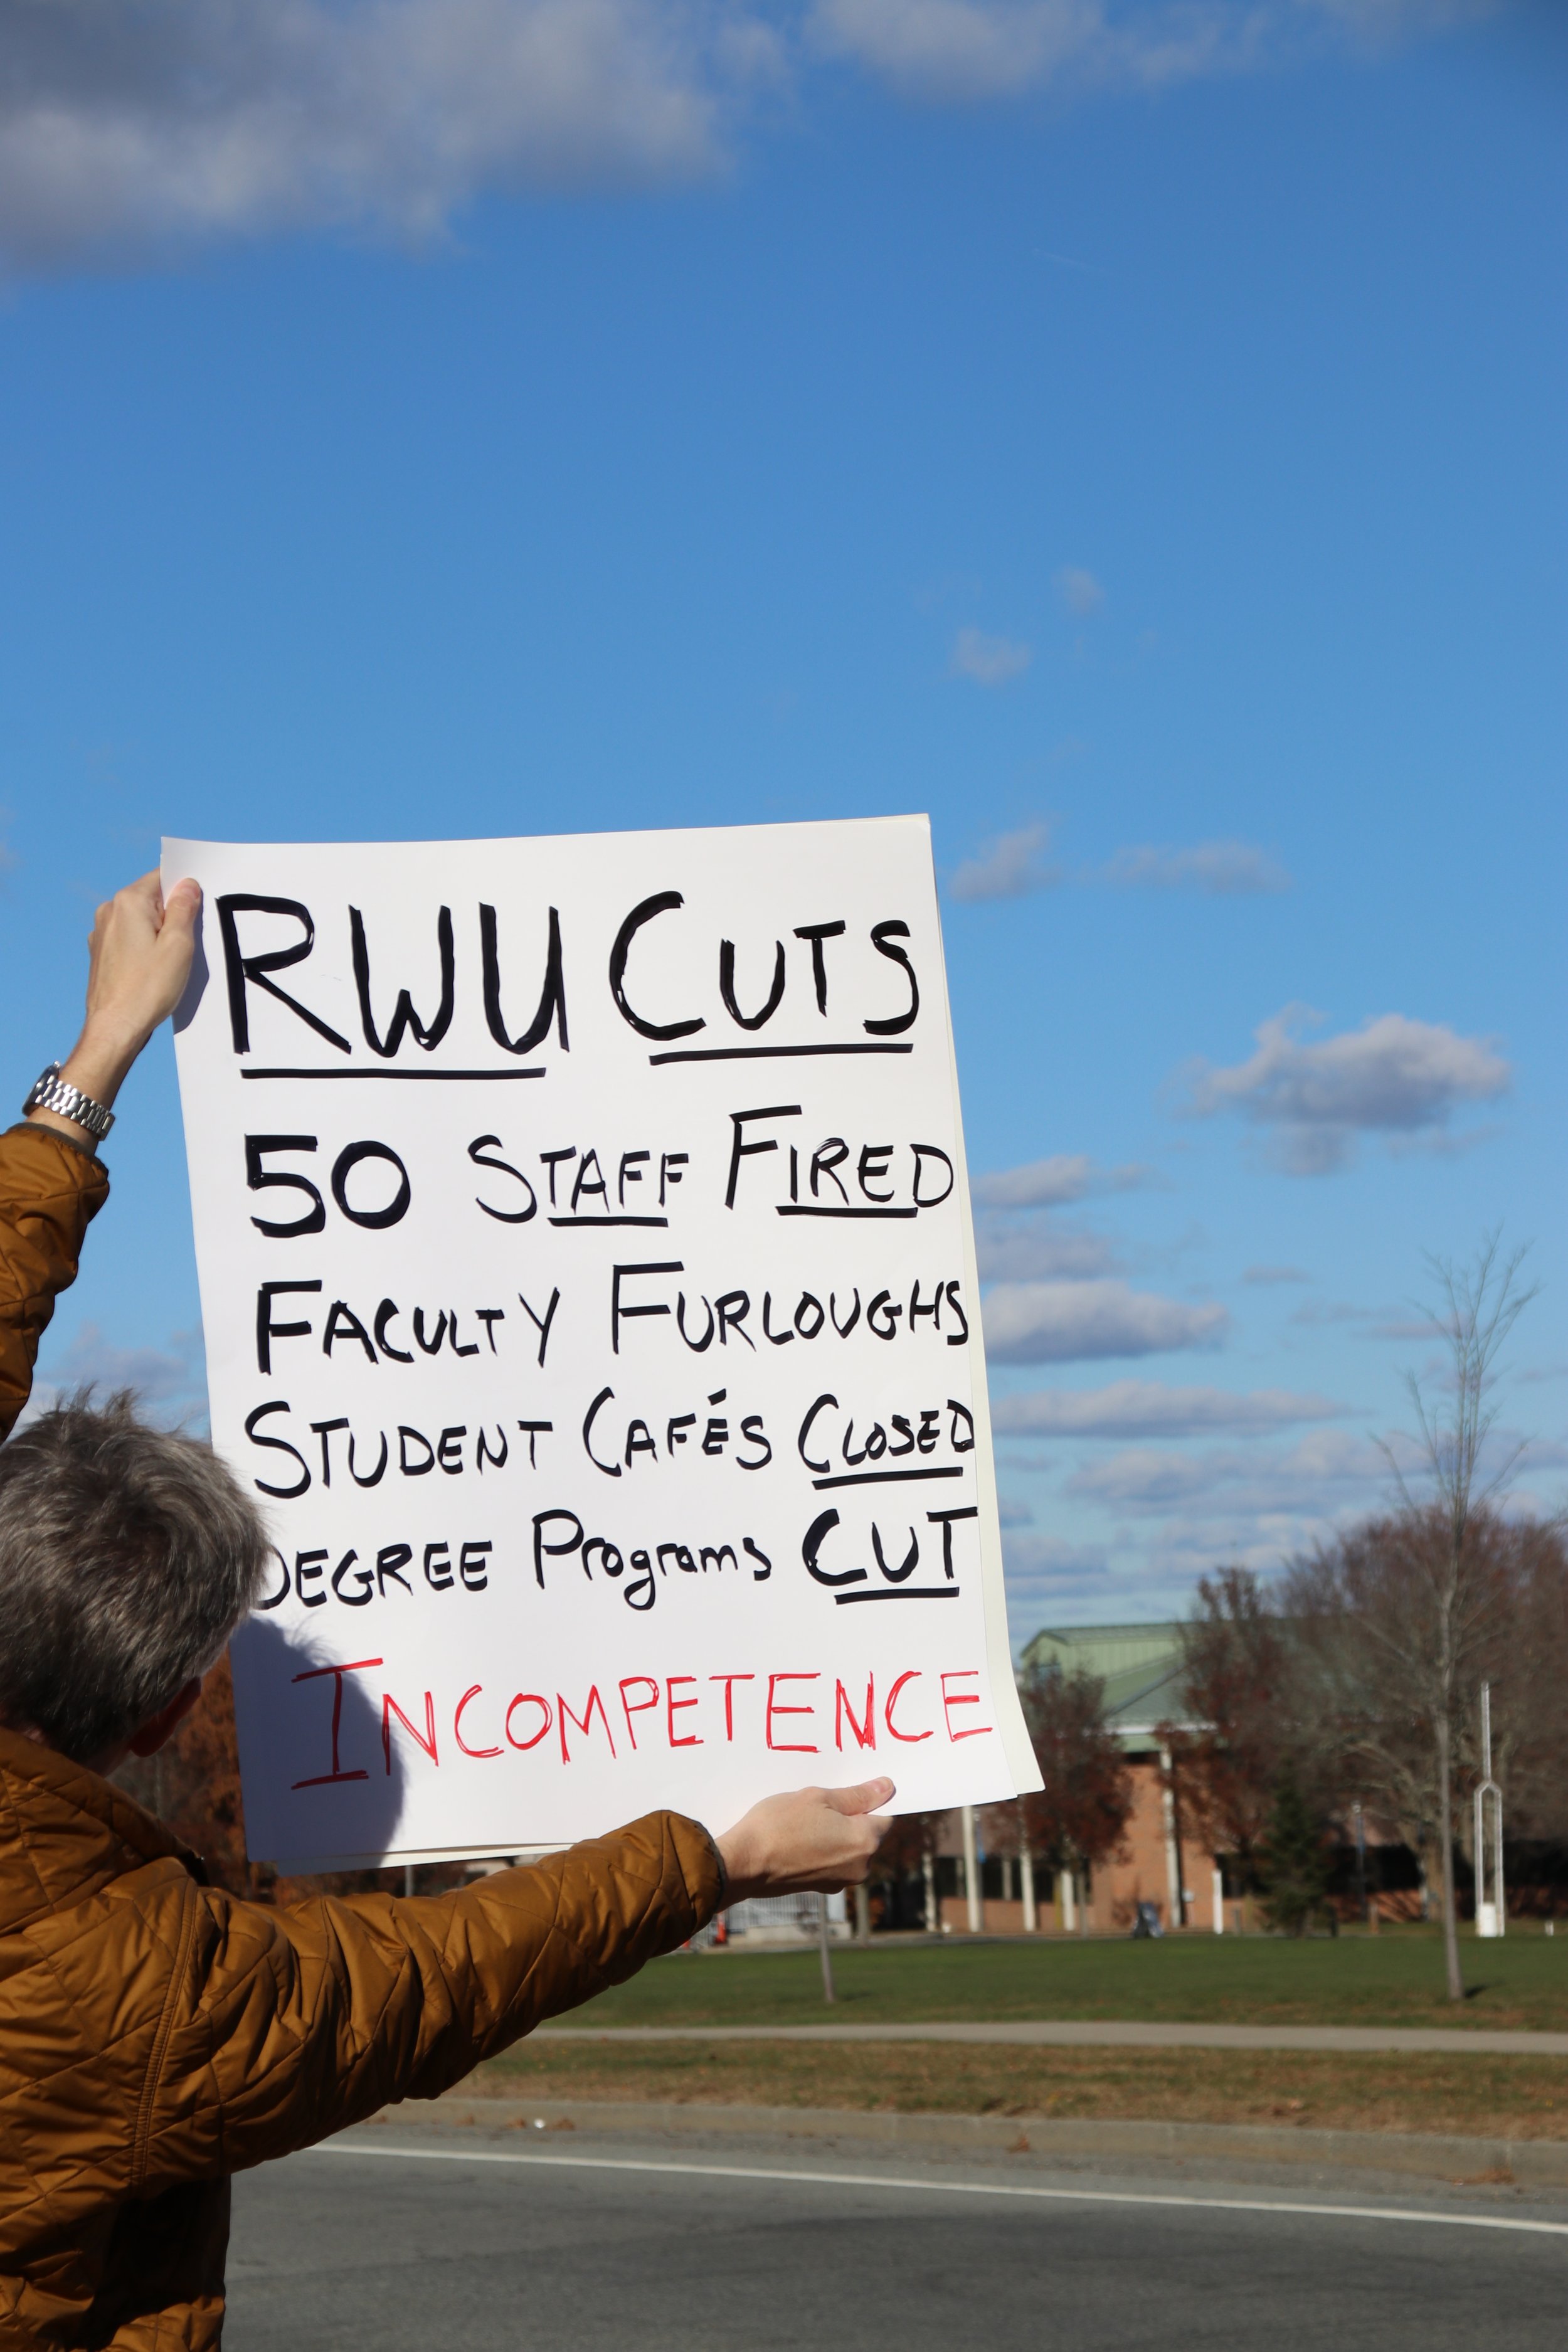 RWU CUTS
50 STAFF FIRED
FACULTY FURLOUGHS
STUDENT CAFÉS CLOSED
DEGREE Programs CUT
INCOMPETENCE